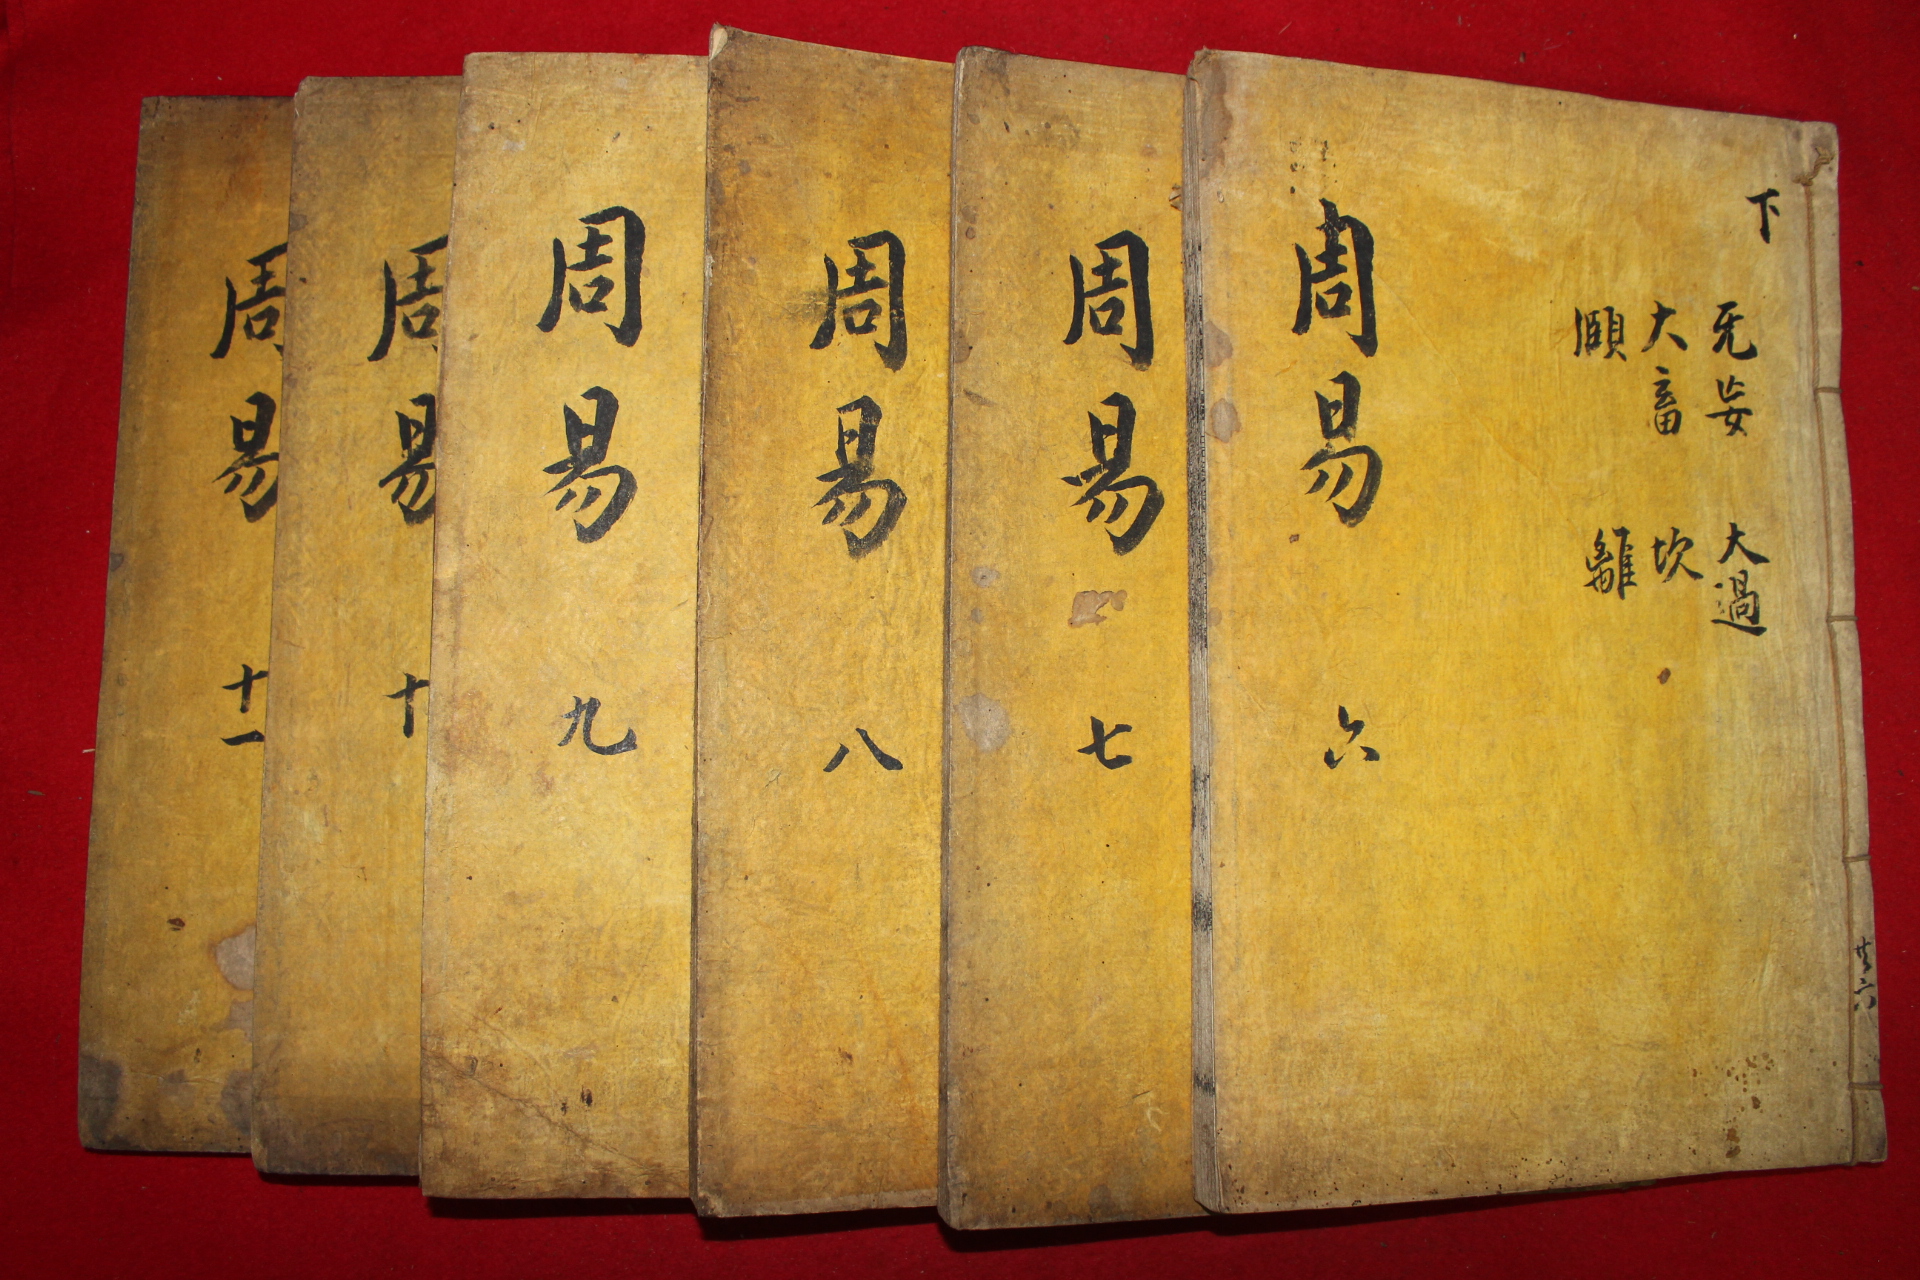 下
无妄 大過
大畜 坎
頤 離
周易 六
共六
周易 七
周易 八
周易 九
周易 十
周易 十一